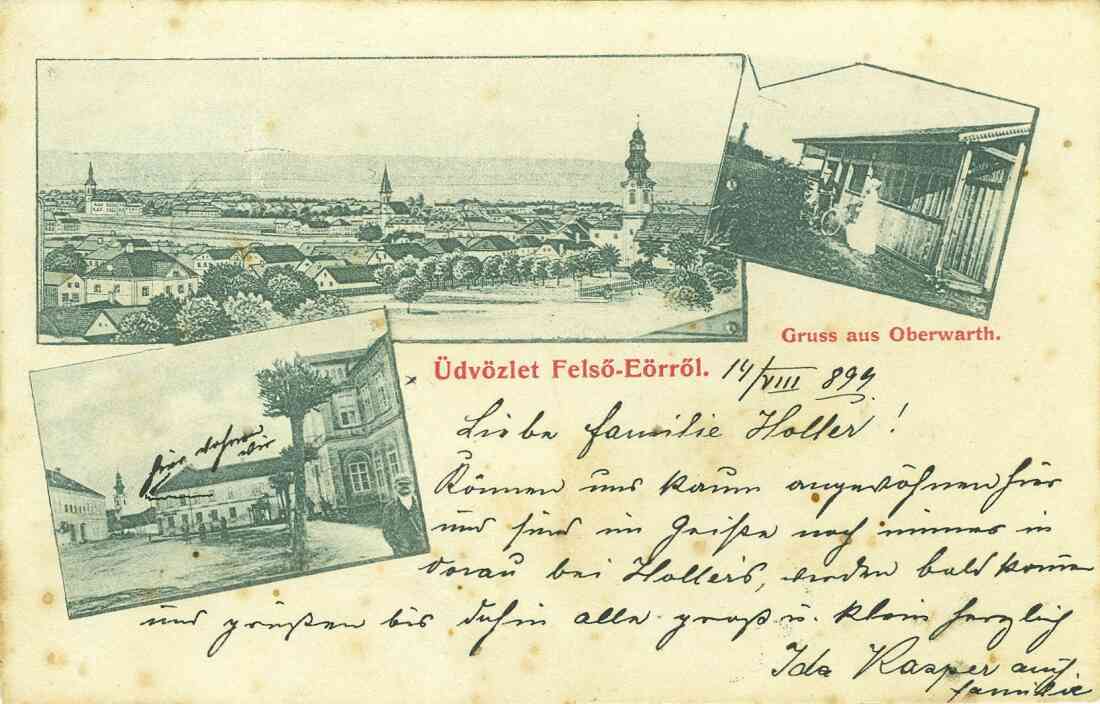 Gruss aus Oberwarth.
Üdvözlet Felső-Eörről.
14/VIII 899
Liebe Familie Holler!
Können uns kaum angewöhnen hier
und sind im Geiste noch immer in
bei Hollers, werden bald kommen
und grüßen bis dahin alle groß u. klein herzlich
Ida Kasper auch
Familie
hier wohnen
wir